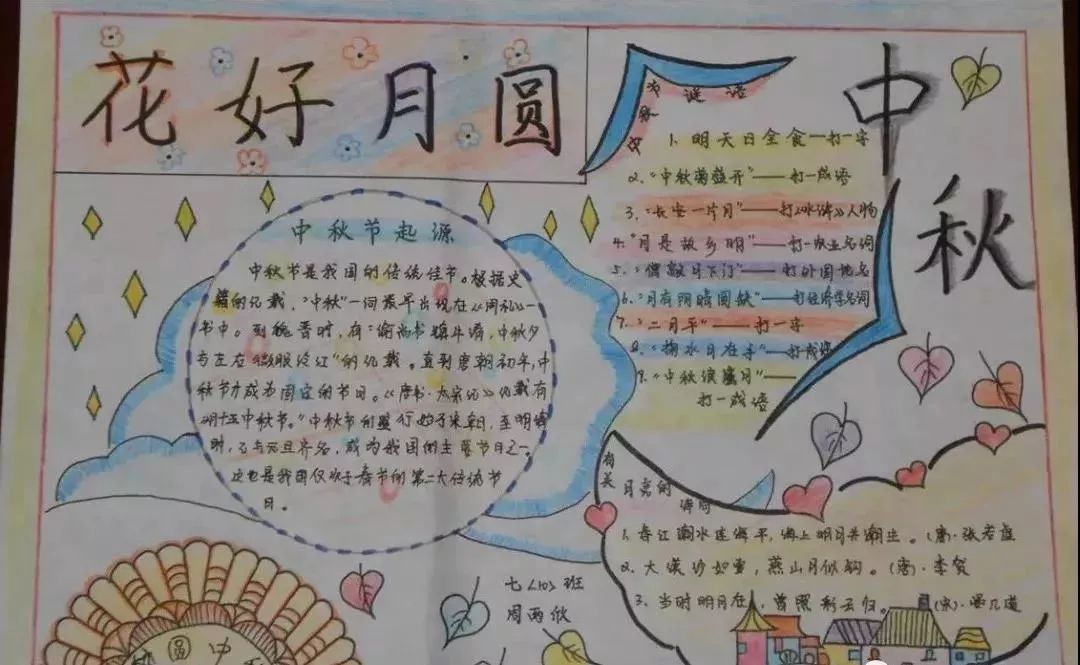 花好月圆
中秋
中秋节起源
中秋节是我国的传统佳节。根据史
籍的记载，“中秋”一词最早出现在《周礼》一
书中。到魏晋时，有“谕尚书镇牛渚，中秋夕
与左右微服泛江”的记载。直到唐朝初年，中
秋节才成为固定的节日。《唐书·太宗记》记载有
“八月十五中秋节。”中秋节的盛行始于宋朝，至明清
时，已与元旦齐名，成为我国的主要节日之一。
这也是我国仅次于春节的第二大传统节
日。
有关中秋
谜语
1. 明天日全食——打一字
2. “中秋菊盛开”——打一成语
3. “长安一片月”——打《水浒》人物
4. “月是故乡明”——打一农业名词
5. “僧敲月下门”——打外国地名
6. “月有阴晴圆缺”——打经济学名词
7. “二月平”——打一字
8. “掬水月在手”——打成语
9. “中秋滚露月”——
打一成语
有关
月亮的
诗句
1. 春江潮水连海平，海上明月共潮生。（唐·张若虚
2. 大漠沙如雪，燕山月似钩。（唐）·李贺
3. 当时明月在，曾照彩云归。（宋）·晏几道
七<10>班
周雨欣
圆 中